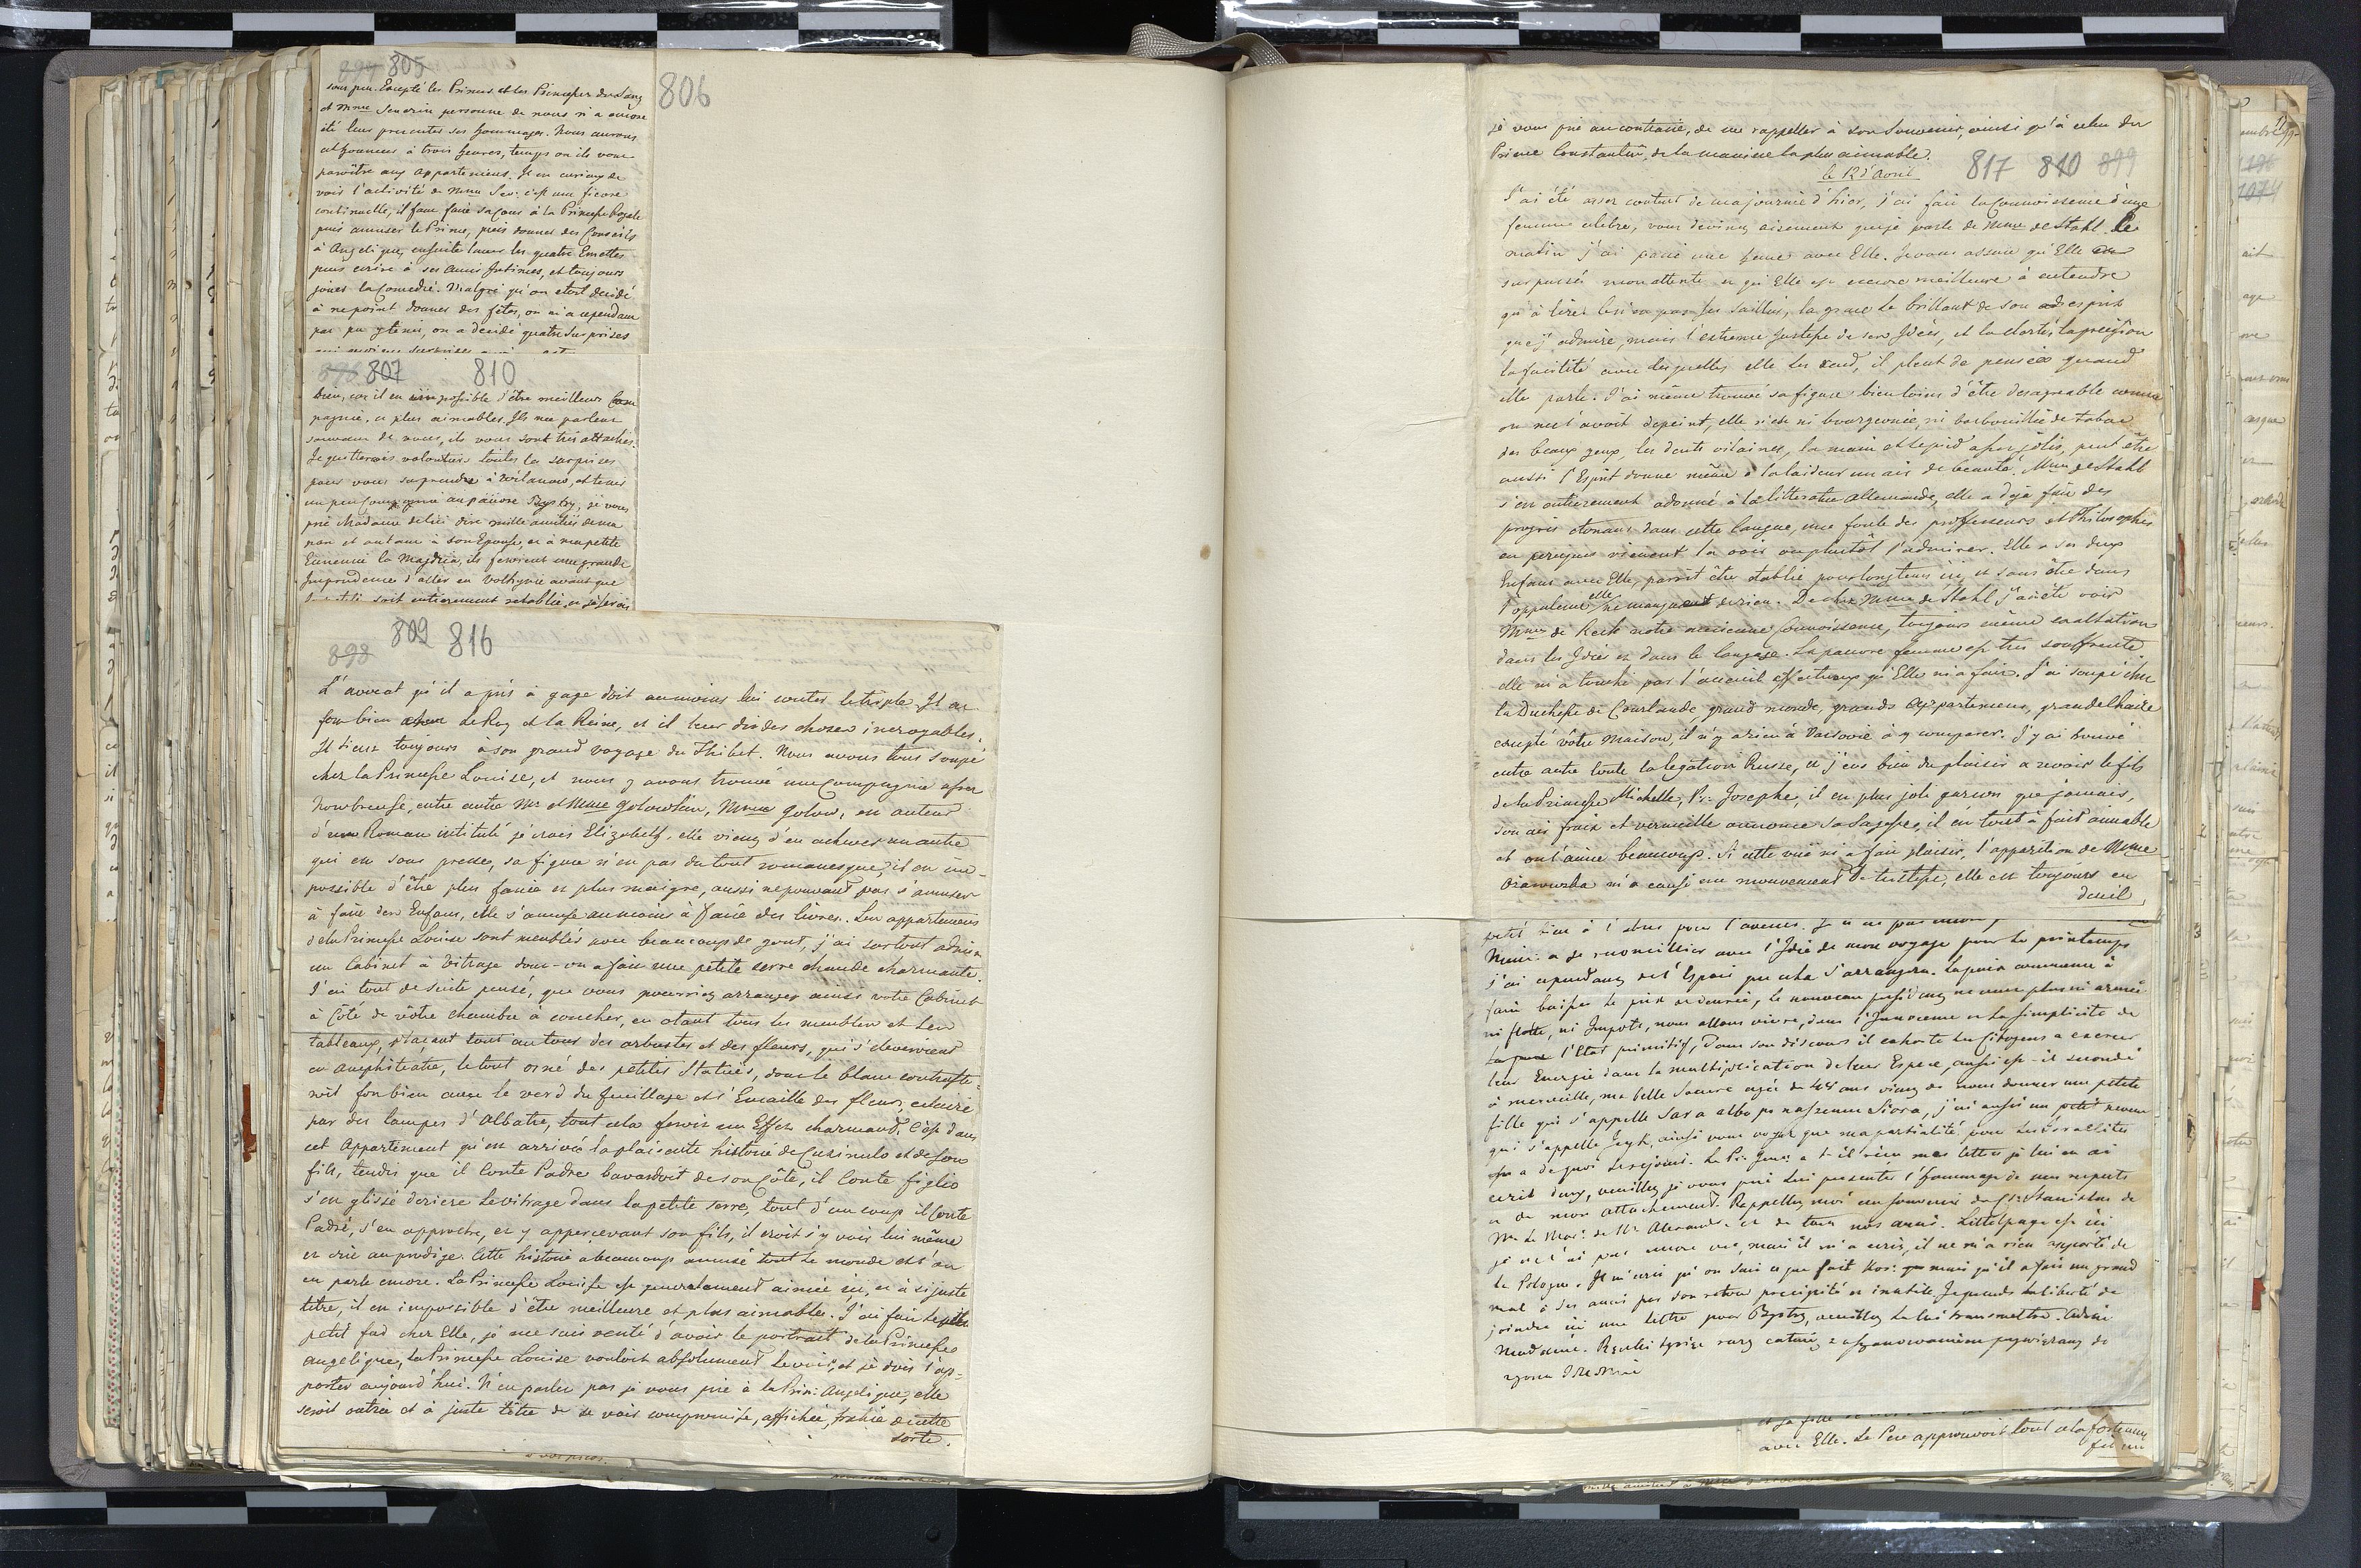 894 805
sous peu. Excepté les Princes et les Princesses du Sang
et Mme Severin personne de nous n'a encore
été leur presenter ses hommages. Nous aurons
cet honneur à trois heures, temps où ils vont
paroitre aux appartemens. Il est curieux de
voir l'activité de Mme Sev: c'est une fievre
continuelle, il faut faire sa Cour à la Princesse Royale
puis amuser le Prince, puis donner des Conseils
à Angelique, ensuite les quatre Emettes
puis ecrire à ses Amis Intimes, et toujours
jouer la Comedie. Malgré qu'on etoit decidé
à ne point donner des fêtes, on n'a cependant
pas pu y tenir, on a decidé quatre surprises
806
896 807 810
bien, car il est impossible d'être meilleurs Com
pagnie, et plus aimables. Ils me parlent
souvent de vous, ils vous sont très attachés.
Je quitterois volontiers toutes les surprises
pour vous surprendre à Wilanow, et tenir
un peu Compagnie au pauvre Bystry, je vous
prie Madame de lui dire mille amitiés de ma
part et autant à son Epouse, et à ma petite
Ennemie la Majdzia, ils feroient une grande
Imprudence d'aller en Volhynie avant que
soit entierement retablie, et je serois
898 809 816
L'avocat qu'il a pris à gage doit au moins lui couter le triple. Il est
fort bien chez Le Roy et la Reine, et il leur dit des choses incroyables.
Il tient toujours à son grand voyage du Thibet. Nous avons tous soupé
chez la Princesse Louise, et nous y avons trouvé une Compagnie assez
Nombreuse, entre autre Mr et Mme Golowkin, Mme Golow, est auteur
d'un Roman intitulé je crois Elizabeth, elle vient d'en achever un autre
qui est sous presse, sa figure n'est pas du tout romanesque, il est im-
possible d'être plus fanée et plus maigre, aussi ne pouvant pas s'amuser
à faire des Enfans, elle s'amuse au moins à faire des livres. Les appartemens
de la Princesse Louise sont meublés avec beaucoup de gout, j'ai surtout admiré
un Cabinet à Vitrage dont-on a fait une petite serre chaude charmante.
J'ai tout de suite pensé, que vous pourriez arranger ainsi votre Cabinet
à Côté de vôtre chambre à coucher, en otant tous les meubles et les
tableaux, plaçant tout au tour des arbustes et des fleurs, qui s'eleveroient
en amphiteatre, le tout orné des petites Statues, dont le blanc contraste-
roit fort bien avec le verd du feuillage et l'Emaille des fleurs, eclairé
par des lampes d'Albatre, tout cela feroit un Effet charmant. C'est dans
cet Appartement qu'est arrivée la plaisante histoire de et de son
fils, tandis que il Conte Padre bavardoit de son Côté, il Conte figlio
s'est glissé deriere le vitrage dans la petite serre, tout d'un coup il Conte
Padre, s'en approche, et y appercevant son fils, il croit s'y voir lui même
et crie au prodige. Cette histoire a beaucoup amusé tout le monde et l'on
en parle encore. La Princesse Louise est generalement aimée ici, et à si juste
titre, il est impossible d'être meilleure et plus aimable. J'ai fait le
petit fad chez Elle, je me suis venté d'avoir le portrait de la Princesse
Angelique, la Princesse Louise vouloit absolument le voir, et je dois l'ap-
porter aujourd'hui. N'en parlez pas je vous prie à la Prin: Angelique, elle
seroit outrée et à juste titre de se voir compromise, affichée, trahie de cette
sorte.
je vous prie au contraire, de me rappeller à son Souvenir, ainsi qu'à celui du
Prince Constantin, de la maniere la plus aimable.
le 12 d'Avril 817 810 899
J'ai été assez content de ma journée d'hier, j'ai fait la Connoissance d'une
femme celebre, vous devinez aisement que je parle de Mme de Stahl. Le
matin j'ai passé une heure avec Elle. Je vous assure qu'Elle
surpassé mon attente et qu'Elle est encore meilleure à entendre
qu'à lire. Ce n'est pas les saillies, la grace le brillant de son esprit
que j'admire, mais l'extreme justesse de ses Idées, et la clarté, la précision
la facilité avec lesquelles elle les rend, il pleut de pensées quand
elle parle. J'ai même trouvé sa figure bien loins d'être desagreable comme
on me l'avoit depeint, elle n'est ni bourgeonée, ni barbouillée de tabac
des beaux yeux, les dents vilaines, la main et le pied assez jolis, peut être
aussi l'Esprit donne même à la laideur un air de beauté. Mme de Stahl
s'est entierement adonné à la litterature Allemande, elle a deja fait des
progrès etonans dans cette langue, une foule des professeurs et Philosophes
en perruques vienent la voir ou plustôt l'admirer. Elle a ses deux
Enfans avec Elle, paroit être etablie pour longtems ici, et sans être dans
l'oppulence elle ne manque de rien. De chez Mme de Stahl j'ai été voir
Mme de Reck notre ancienne Connoissance, toujours même exaltation
dans les Idées et dans le langage. La pauvre femme est tres souffrante,
elle m'a touché par l'accueil affectueux qu'Elle m'a fait. J'ai soupé chez
la Duchesse de Courlande, grand monde, grands Appartemens, grande Chaire
excepté vôtre Maison, il n'y a rien à Varsovie à y comparer. J'y ai trouvé
entre autre toute la legation Russe, et j'eus bien du plaisir a revoir le fils
de la Princesse Michelle, Pr: Josephe, il est plus joli garçon que jamais,
son air fraix et vermeille annonce sa Sagesse, il est tout à fait aimable
et on l'aime beaucoup. Si cette vuë m'a fait plaisir, l'apparition de Mme
Ozarowska m'a causé un mouvement de tristesse, elle est toujours en
deuil,
j'ai cependant l'Espoir que cela s'arrangera. La paix commence à
faire baisser le prix de denrées, le nouveau president ne veut plus ni armée
ni flotte, ni Impots, nous allons vivre, dans l'Innocence et la simplicité de
l'Etat primitif, Dans son discours il exhorte les Citoyens a exercer
leur Energie dans la multiplication de leur Espece, aussi est-il secondé
à merveille, ma belle Soeure agée de 44 ans vient de nous donner une petite
fille qui s'appelle Sara albo po naszemu Siora, j'ai aussi un petit neveu
qui s'appelle Jeyk, ainsi vous voyez que ma partialité pour les Israelites
a de quoi se rejouir. Le Pr: Gen: a t-il reçu mes lettres je lui en ai
ecrit deux, veuillez je vous prie lui presenter l'hommage de mes respects
et de mon attachement. Rappellez moi au souvenir du Cte Stanislas de
Mr Le Mar: de Mr Alexandre et de tous nos amis. Littelpage est ici
je ne l'ai pas encore vue, mais il m'a ecrit, il ne m'a rien apporté de
la Pologne. Il m'ecrit qu'on sait ce que fait Kos: mais qu'il a fait un grand
mal à ses amis par son retour precipité et inutile Je prends la liberté de
joindre ici une lettre pour Bystry, veuillez la lui transmettre. Adieu
Madame. Rączki tysiąc razy całuię z uszanowaniem
avec Elle. Le Pere approuvoit tout cela fortement